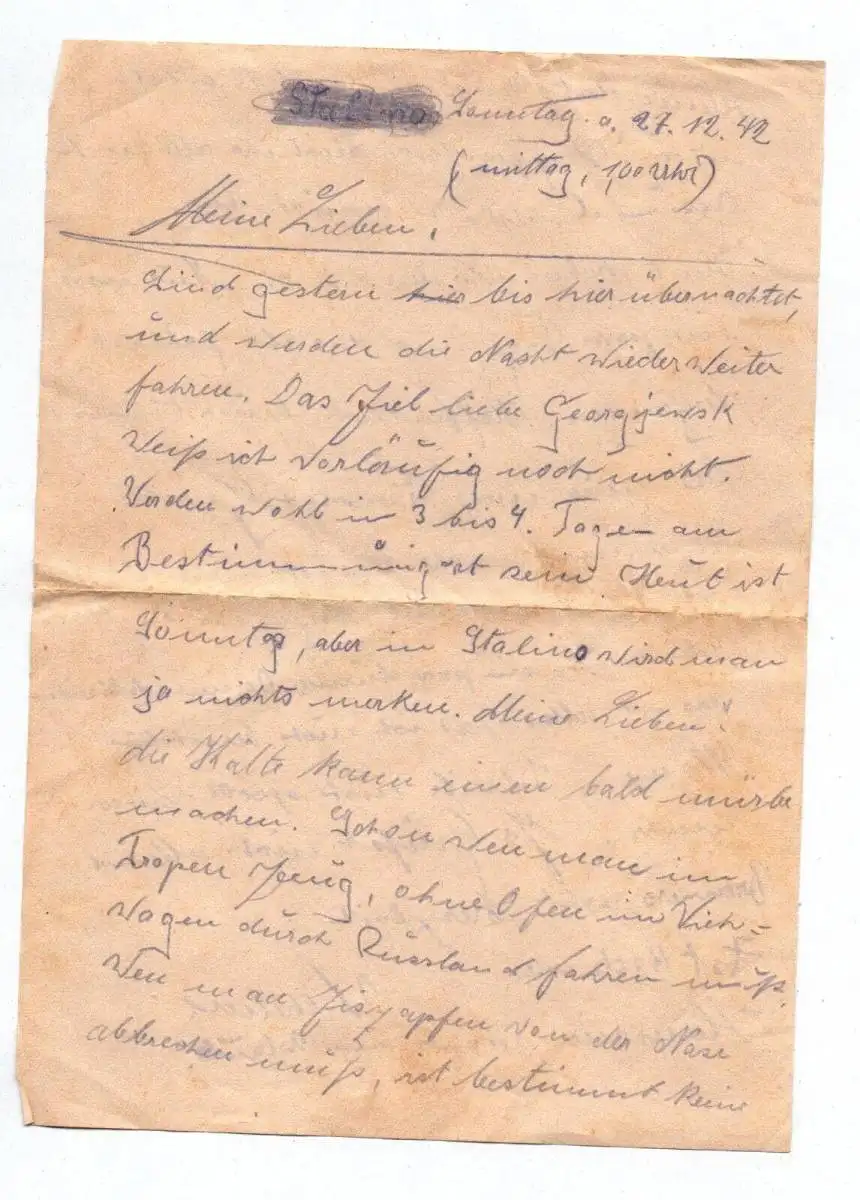 Stalino Sonntag. d. 27.12.42
(mittag, 1,00 Uhr)
Meine Lieben,
Sind gestern hier bis hier übernachtet,
und werden die Nacht wieder weiter
fahren. Das Ziel liebe Georgjewsk
weiß ich vorläufig noch nicht.
Werden wohl in 3 bis 4. Tage am
Bestimmungsort sein. Heut ist
Sonntag, aber in Stalino wird man
ja nichts merken. Meine Lieben!
die Kälte kann einen bald mürbe
machen. Schon wen man im
Tropen Zeug, ohne Ofen im Vieh-
wagen durch Russland fahren muß.
Wen man Ziszapfen von der Nase
abbrechen muß, ist bestimmt keine